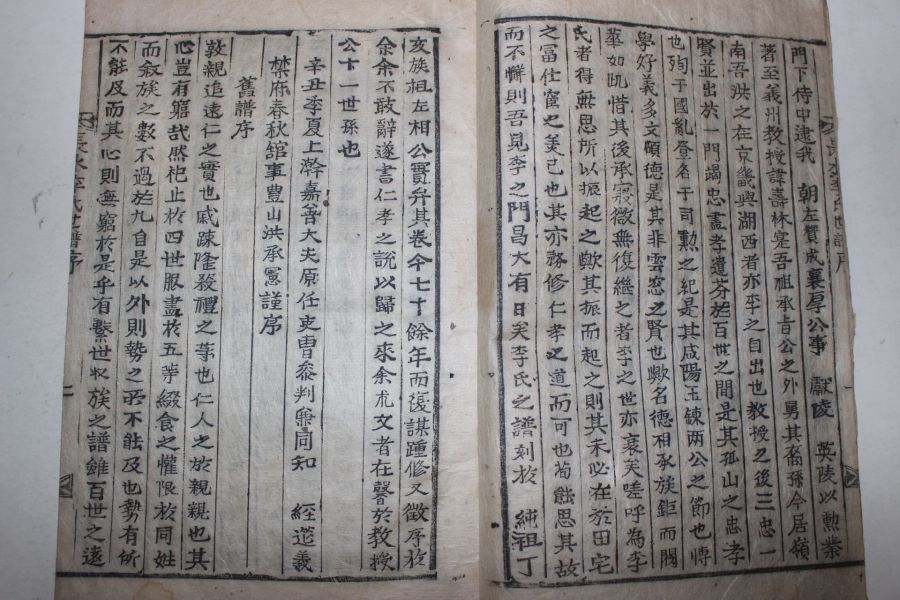 門下侍中逮我 朝左贊成襄厚公事 獻陵 英陵以勲業
著至義州教授諱壽林寔吾祖承旨公之外舅其裔孫今居嶺
南吾洪之在京畿與湖西者亦李之自出也教授之後三忠一
賢並出於一門竭忠盡孝遺芬於百世之間是其孤山之忠孝
也殉于國亂登名于司勲之紀是其咸陽玉鍊兩公之節也博
學好義多文願德是其非雲窓之賢也歟名德相承族鉅而閥
華如此惜其後承寂微無復継之者李之世亦衰矣嗟呼為李
氏者得無思所以振起之歟其振而起之則其未必在於田宅
之冨仕宦之美已也其亦務修仁孝之道而可也苟能思其故
而不懈則吾見李之門昌大有日矣李氏之譜刻於 純祖丁
亥族祖左相公實弁其卷今七十餘年而復謀踵修又徴序於
余余不敢辭遂書仁孝之說以歸之來余尤文者在馨於教授
公十一世孫也
辛丑季夏上澣嘉善大夫原任吏曹叅判兼同知 經筵義
禁府春秋舘事豊山洪承憲謹序
舊譜序
敦親追遠仁之實也戚踈隆殺禮之等也仁人之於親親也其
心豈有窮哉然祀止於四世服盡於五等綴食之懽限於同姓
而叙族之數不過於九自是以外則勢之所不能及也勢有所
不能及而其心則無窮於是乎有繫世収族之譜雖百世之遠
李氏世譜序